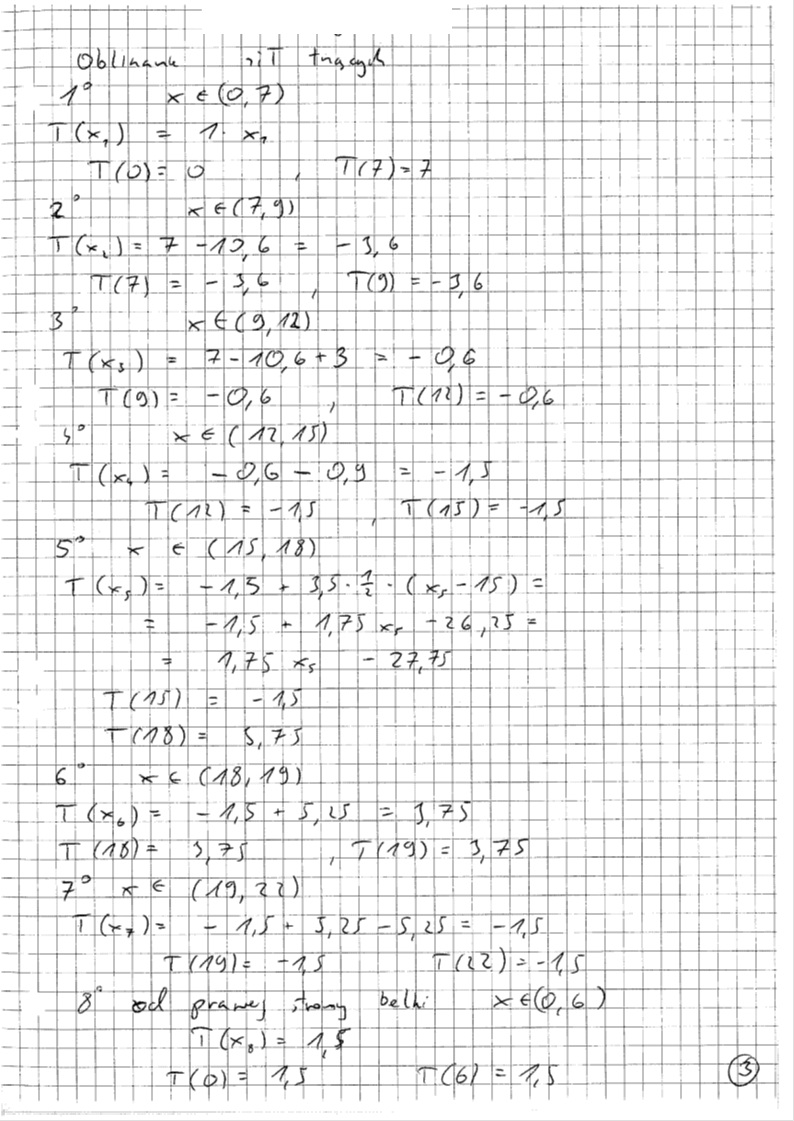 Obliczanie sił tnących
1° x ∈ (0,7)
T(x₁) = 1 · x₁
T(0) = 0 , T(7) = 7
2° x ∈ (7,9)
T(x₂) = 7 - 10,6 = -3,6
T(7) = -3,6 , T(9) = -3,6
3° x ∈ (9,12)
T(x₃) = 7 - 10,6 + 3 = -0,6
T(9) = -0,6 , T(12) = -0,6
4° x ∈ (12,15)
T(x₄) = -0,6 - 0,9 = -1,5
T(12) = -1,5 , T(15) = -1,5
5° x ∈ (15,18)
T(x₅) = -1,5 + 3,5 · 1/2 · (x₅ - 15) =
= -1,5 + 1,75 x₅ - 26,25 =
= 1,75 x₅ - 27,75
T(15) = -1,5
T(18) = 3,75
6° x ∈ (18,19)
T(x₆) = -1,5 + 5,25 = 3,75
T(18) = 3,75 , T(19) = 3,75
7° x ∈ (19,22)
T(x₇) = -1,5 + 5,25 - 5,25 = -1,5
T(19) = -1,5 T(22) = -1,5
8° od prawej strony belki x ∈ (0,6)
T(x₈) = 1,5
T(0) = 1,5 T(6) = 1,5
3